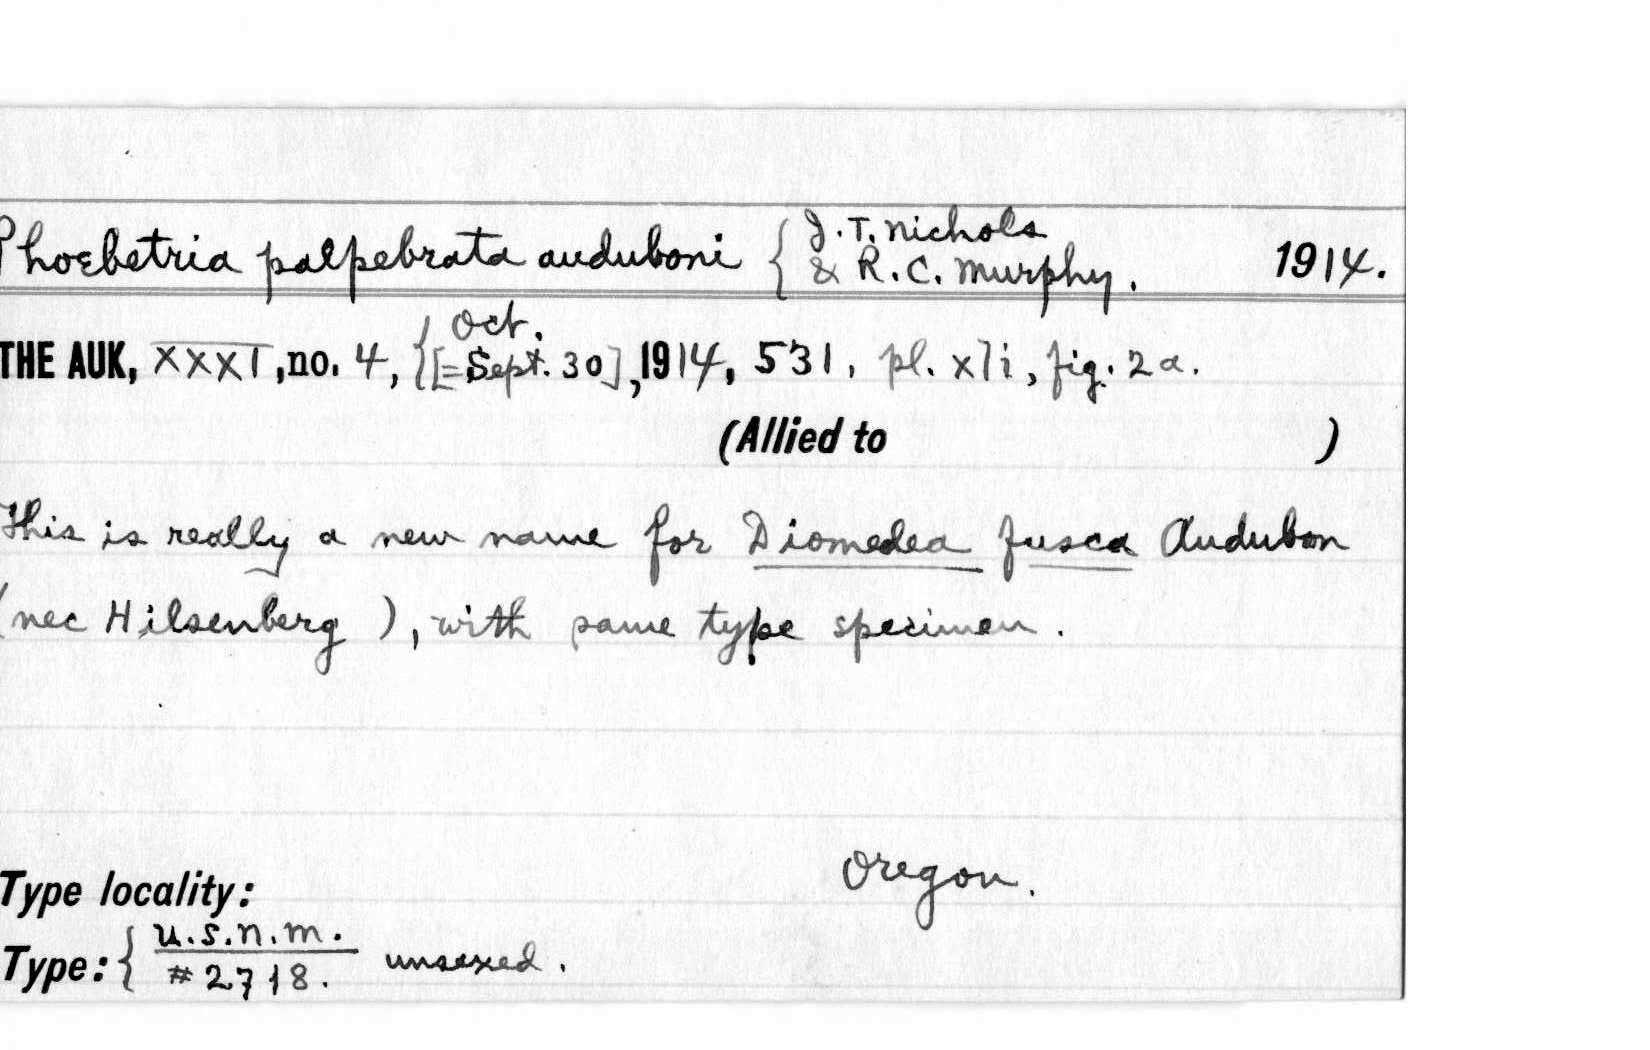 Phoebetria palpebrata auduboni { J. T. Nichols & R. C. Murphy. 1914.
THE AUK, XXXI, no. 4, { Oct. [=Sept. 30], 1914, 531, pl. xli, fig. 2a.
(Allied to )
This is really a new name for Diomedea fusca Audubon
(nec Hilsenberg ), with same type specimen.
Type locality: Oregon.
Type: { U.S.N.M. #2718. unsexed.